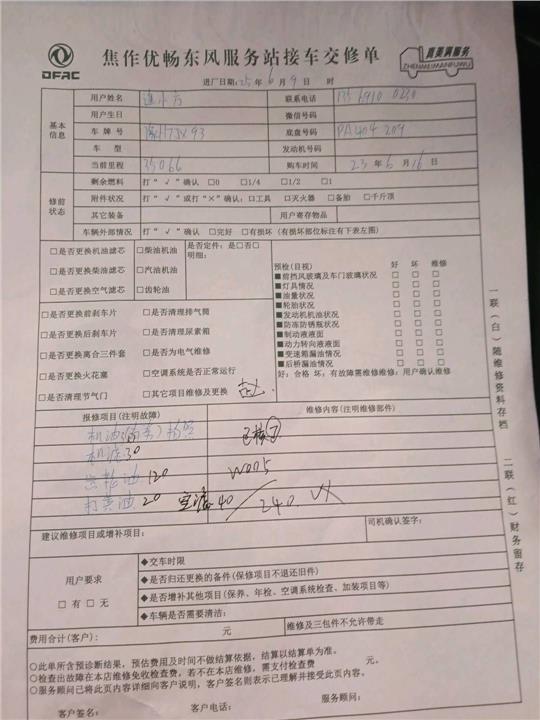 DFAC
焦作优畅东风服务站接车交修单
真美满服务
ZHENMEIMANFUWU
进厂日期:25年6月9日 时
基本信息
用户姓名 联系电话
用户生日 微信号码
车牌号 底盘号码 PA404209
车型 发动机号码
当前里程 35066 购车时间 23年6月16日
修前状态
剩余燃料 打“√”确认 □0 □1/4 □1/2 □1
附件状况 打“√”或打“×”确认:□工具 □灭火器 □备胎 □千斤顶
其它装备 用户寄存物品
车辆外部情况 打“√”确认 □完好 □有损坏(有损坏部位标注有下表左图)
□是否更换机油滤芯 □柴油机油 是否定件:是□否□
明细:
□是否更换柴油滤芯 □汽油机油
□是否更换空气滤芯 □齿轮油
□是否更换前刹车片 □是否清理排气筒
□是否更换后刹车片 □是否清理尿素箱
□是否更换离合三件套 □是否为电气维修
□是否更换火花塞 □空调系统是否正常运行
□是否清理节气门 □其它项目维修及更换
预检(目视) 好 坏 维修
■前挡风玻璃及车门玻璃状况 □ □ □
■灯具情况 □ □ □
■油量状况 □ □ □
■轮胎状况 □ □ □
■发动机机油状况 □ □ □
■防冻防锈瓶状况 □ □ □
■制动液液面 □ □ □
■动力转向液液面 □ □ □
■变速箱漏油情况 □ □ □
■后桥漏油情况 □ □ □
好:合格 坏:有故障需维修维修:用户确认维修
报修项目(注明故障) 维修内容(注明维修部件)
机滤30
齿轮油120 W005
打黄油20 空滤40 240
建议维修项目或增补项目: 司机确认签字:
用户要求
□有□无
◆交车时限
◆是否归还更换的备件(保修项目不退还旧件)
◆是否增补其他项目(保养、年检、空调系统检查、加装项目等)
◆车辆是否需要清洁:
费用合计(客户): 元 维修及三包件不允许带走
○此单所含预诊断结果,预估费用及时间不做结算依据,结算以结算单为准。
○检查出故障在本店维修免收检查费,若不在本店维修,需支付检查费 元。
○服务顾问已将此页内容详细向客户说明,客户签名则表示已理解并接受此页内容。
客户签名: 客户电话: 服务顾问:
一联(白)随维修资料存档
二联(红)财务留存